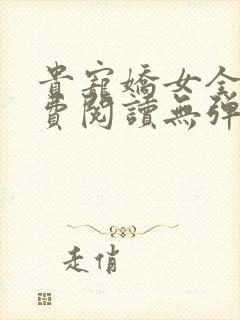 貴寵嬌女全
費閱讀無彈
走俏